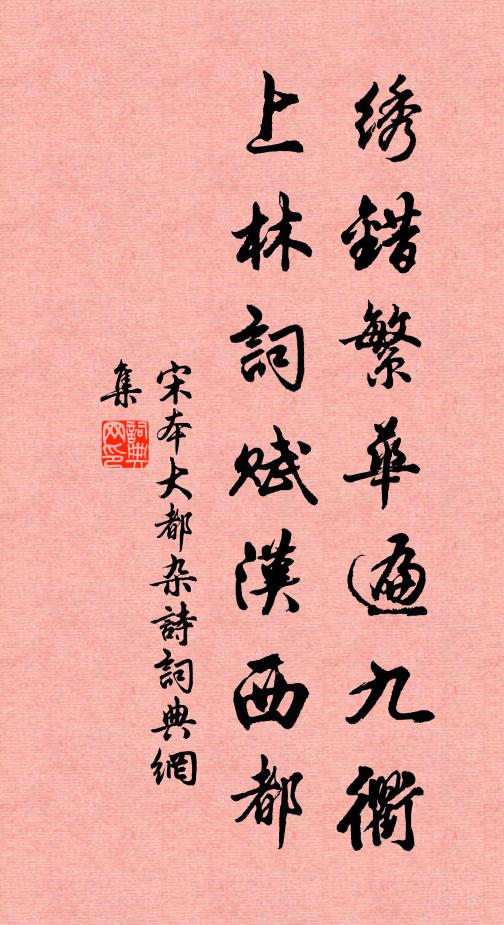 绣錯繁華遍九衢
上林詞賦漢西都
宋本大都杂詩詞典網
集
詞典
网印